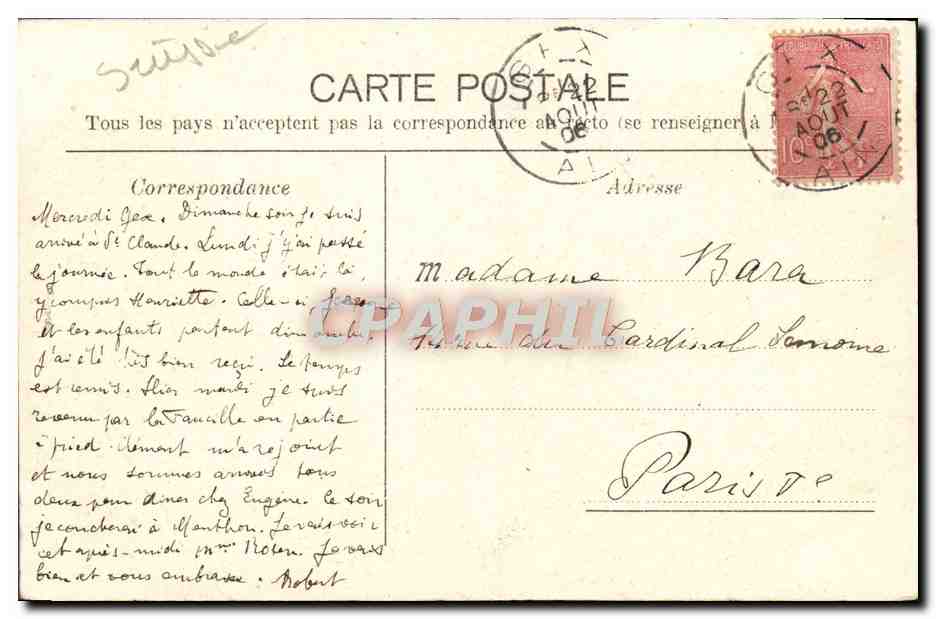 Suisse
CARTE POSTALE
Tous les pays n'acceptent pas la correspondance au recto (se renseigner à
22
AOUT
06
AIN
22
AOUT
06
AIN
10c
Correspondance
Adresse
Mercredi Gex. Dimanche soir je suis
arrivé à St Claude. Lundi j'y ai passé
la journée. Tout le monde était là,
y compris Henriette. Celle-ci
et les enfants partent dimanche,
j'ai été très bien reçu. Le temps
est remis. Hier mardi je suis
revenu par la Faucille en partie
à pied. Clément m'a rejoint
et nous sommes arrivés tous
deux pour diner chez Eugène. Ce soir
je coucherai à Menthon. Je vais voir
cet après-midi Mme Je vais
bien et vous embrasse. Robert
Madame Bara
rue du Cardinal Lemoine
Paris Ve
CPAPHIL